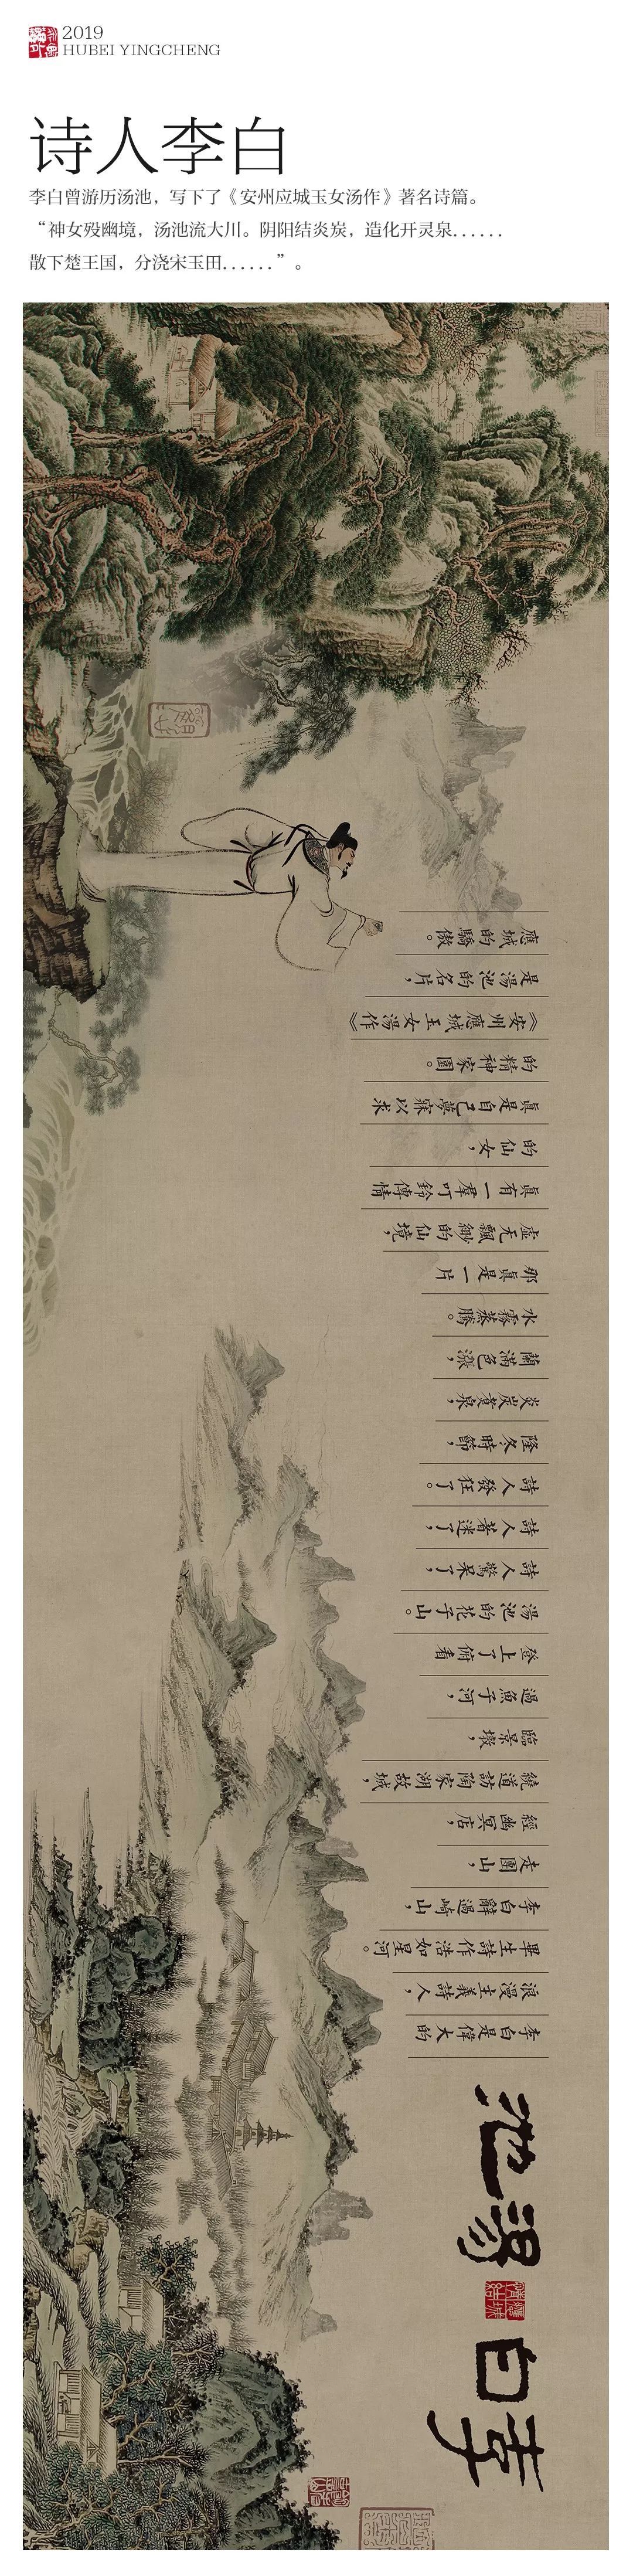 2019
HUBEI YINGCHENG
诗人李白
李白曾游历汤池，写下了《安州应城玉女汤作》著名诗篇。
“神女殁幽境，汤池流大川。阴阳结炎炭，造化开灵泉......
散下楚王国，分浇宋玉田......”。
李白
湯池
李白是偉大的
浪漫主義詩人，
畢生詩作浩如星河。
李白辭過崎山，
走團山，
經幽冥店，
繞道訪陶家湖故城，
臨景墩，
過魚子河，
登上了俯看
湯池的花子山。
詩人驚呆了，
詩人著迷了，
詩人發狂了。
隆冬時節，
炎炭煮泉，
蘭滿色漲，
水霧蒸騰。
那真是一片
虛无飄緲的仙境，
真有一羣叮鈴傳情
的仙女，
真是自己夢寐以求
的精神家園。
《安州應城玉女湯作》
是湯池的名片，
應城的驕傲。